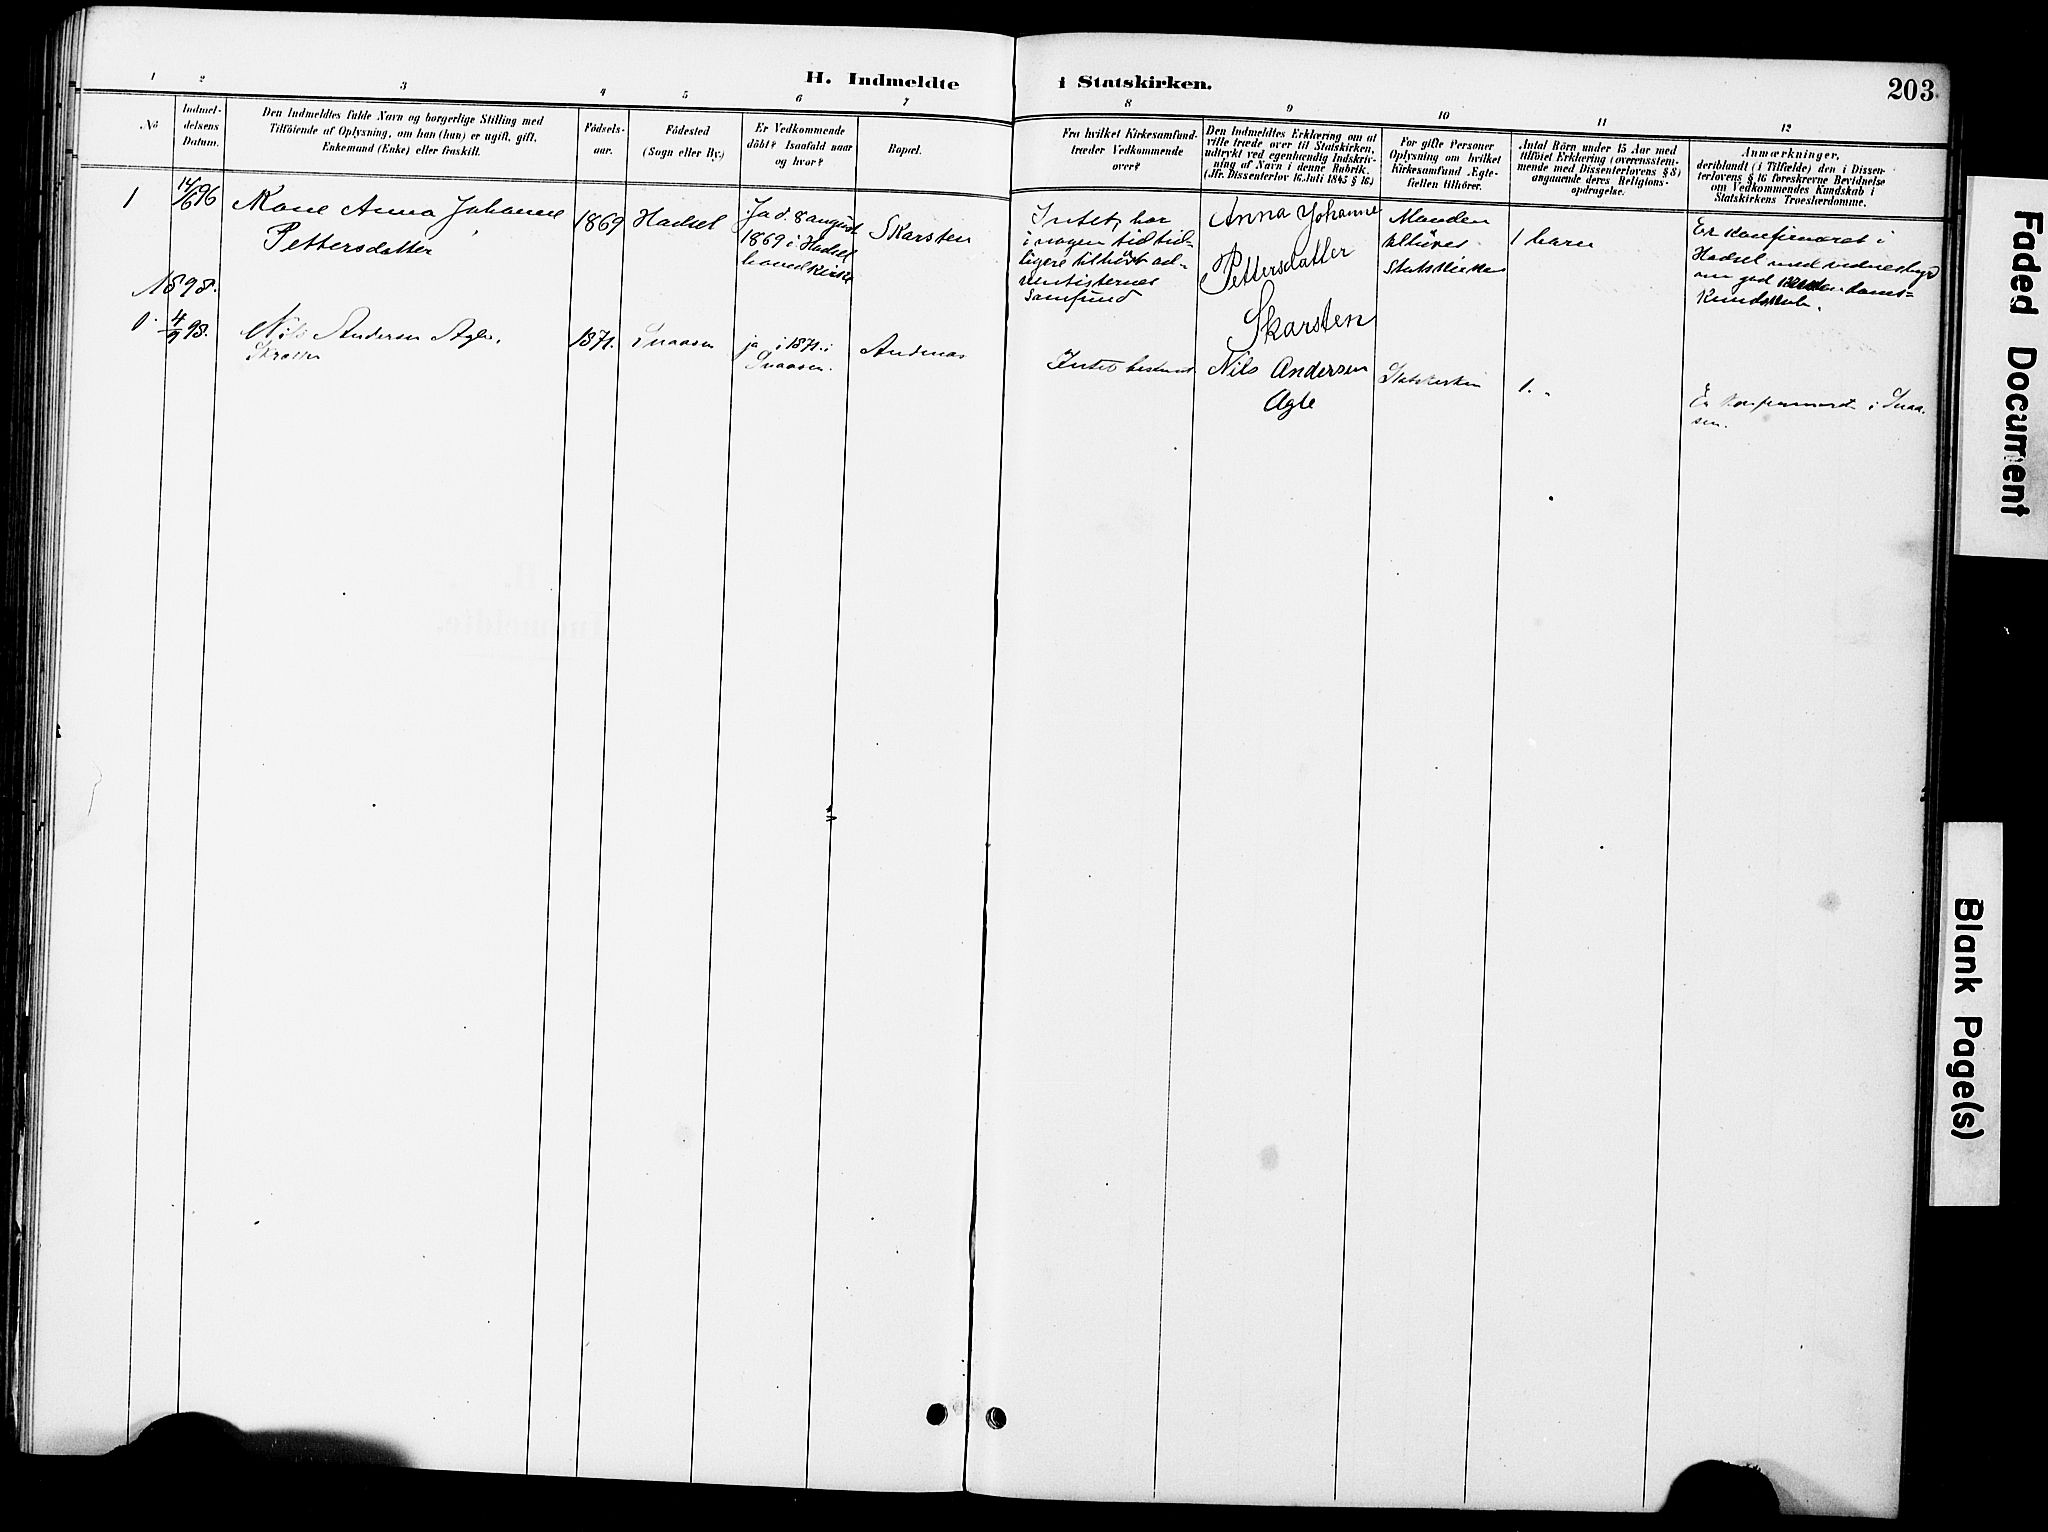 H. Indmeldte i Statskirken.
203.
1 2 3 4 5 6 7 8 9 10 11 12
No
Indmel-
delsens
Datum.
Den Indmeldtes fulde Navn og borgerlige Stilling med
Tilföiende af Oplysning, om han (hun) er ugift, gift,
Enkemand (Enke) eller fraskilt.
Födsels-
aar.
Födested
(Sogn eller By.)
Er Vedkommende
döbt? Isaafald naar
og hvor?
Bopæl.
Fra hvilket Kirkesamfund-
træder Vedkommende
over?
Den Indmeldtes Erklæring om at
ville træde over til Statskirken,
udtrykt ved egenhændig Indskriv-
ning af Navn i denne Rubrik.
(Jfr. Dissenterlov 16. Juli 1845 § 16.)
For gifte Personer
Oplysning om hvilket
Kirkesamfund Ægte-
fællen tilhörer.
Antal Börn under 15 Aar med
tilföiet Erklæring (overensstem-
mende med Dissenterlovens § 8)
angaaende deres Religions-
opdragelse.
Anmærkninger,
deriblandt (i Tilfælde) den i Dissen-
terlovens § 16 foreskrevne Bevidnelse
om Vedkommendes Kundskab i
Statskirkens Troeslærdomme.
1
14/6 96
Kone Anna Johanne
Pettersdatter
1869
Hadsel
Ja d. 8 august
1869 i Hadsel
hovedkirke
Skarsten
Intet, har
i nogen tid tid-
ligere tilhört ad-
ventisternes
samfund
Anna Johanne
Pettersdatter
Skarsten
Manden
tilhörer
Statskirken
1 barn
Er konfirmeret i
Hadsel med vidnesbyrd
om god
Kundskab.
1898.
1.
4/9 98.
Nils Andersen Agle.
1871.
Snaasen
ja, i 1871 i
Snaasen.
Andenæs
Intet bestemt
Nils Andersen
Agle
Statskirken
1. "
Er konfirmeret i Snaa-
sen.
Faded Document
Blank Page(s)